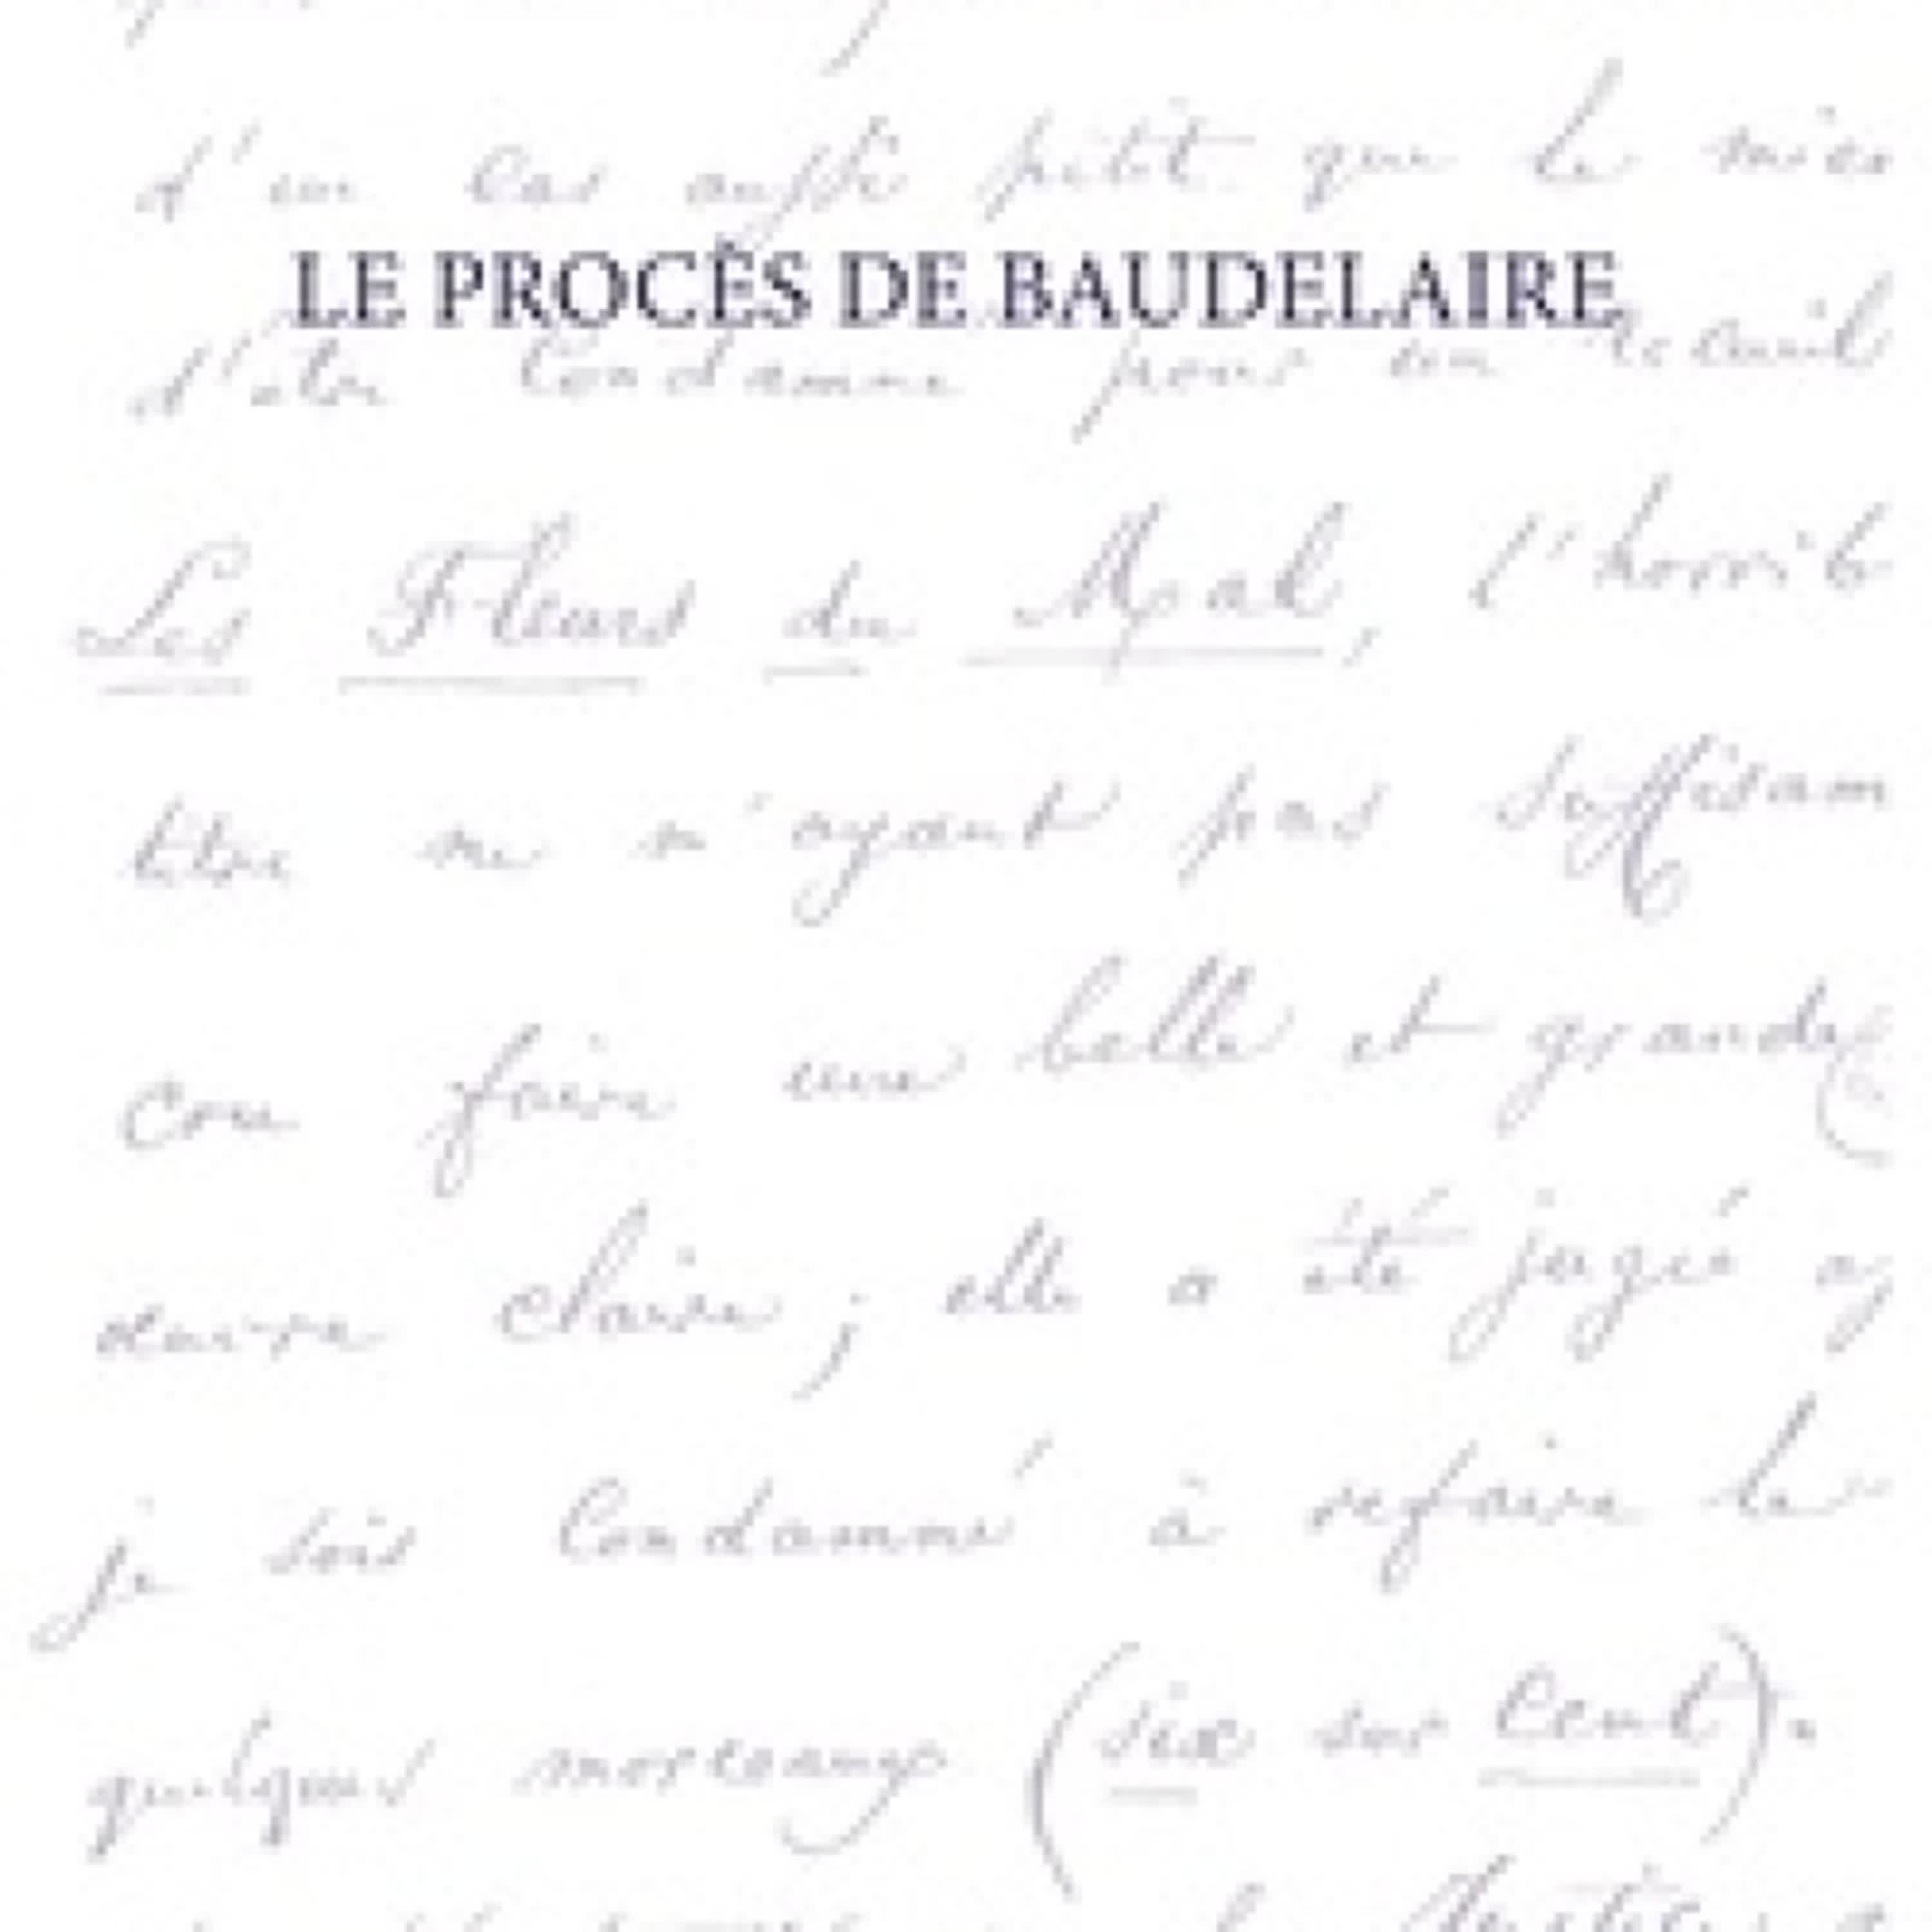 d'un cas aussi petit que le mien
LE PROCÈS DE BAUDELAIRE
d'être condamné pour un recueil
Les Fleurs du Mal, l'horrib
titre n'ayant pas suffisam
faire une belle et grande
claire ; elle a été jugée
je sois condamné à refaire le
quelques morceaux (six sur cent).